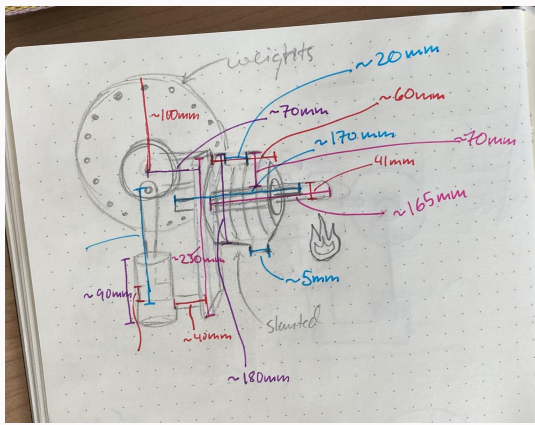 weights
~20mm
~100mm
~70mm
~60mm
~170mm
~70mm
41mm
~165mm
~230mm
~90mm
~5mm
~40mm
slanted
~180mm